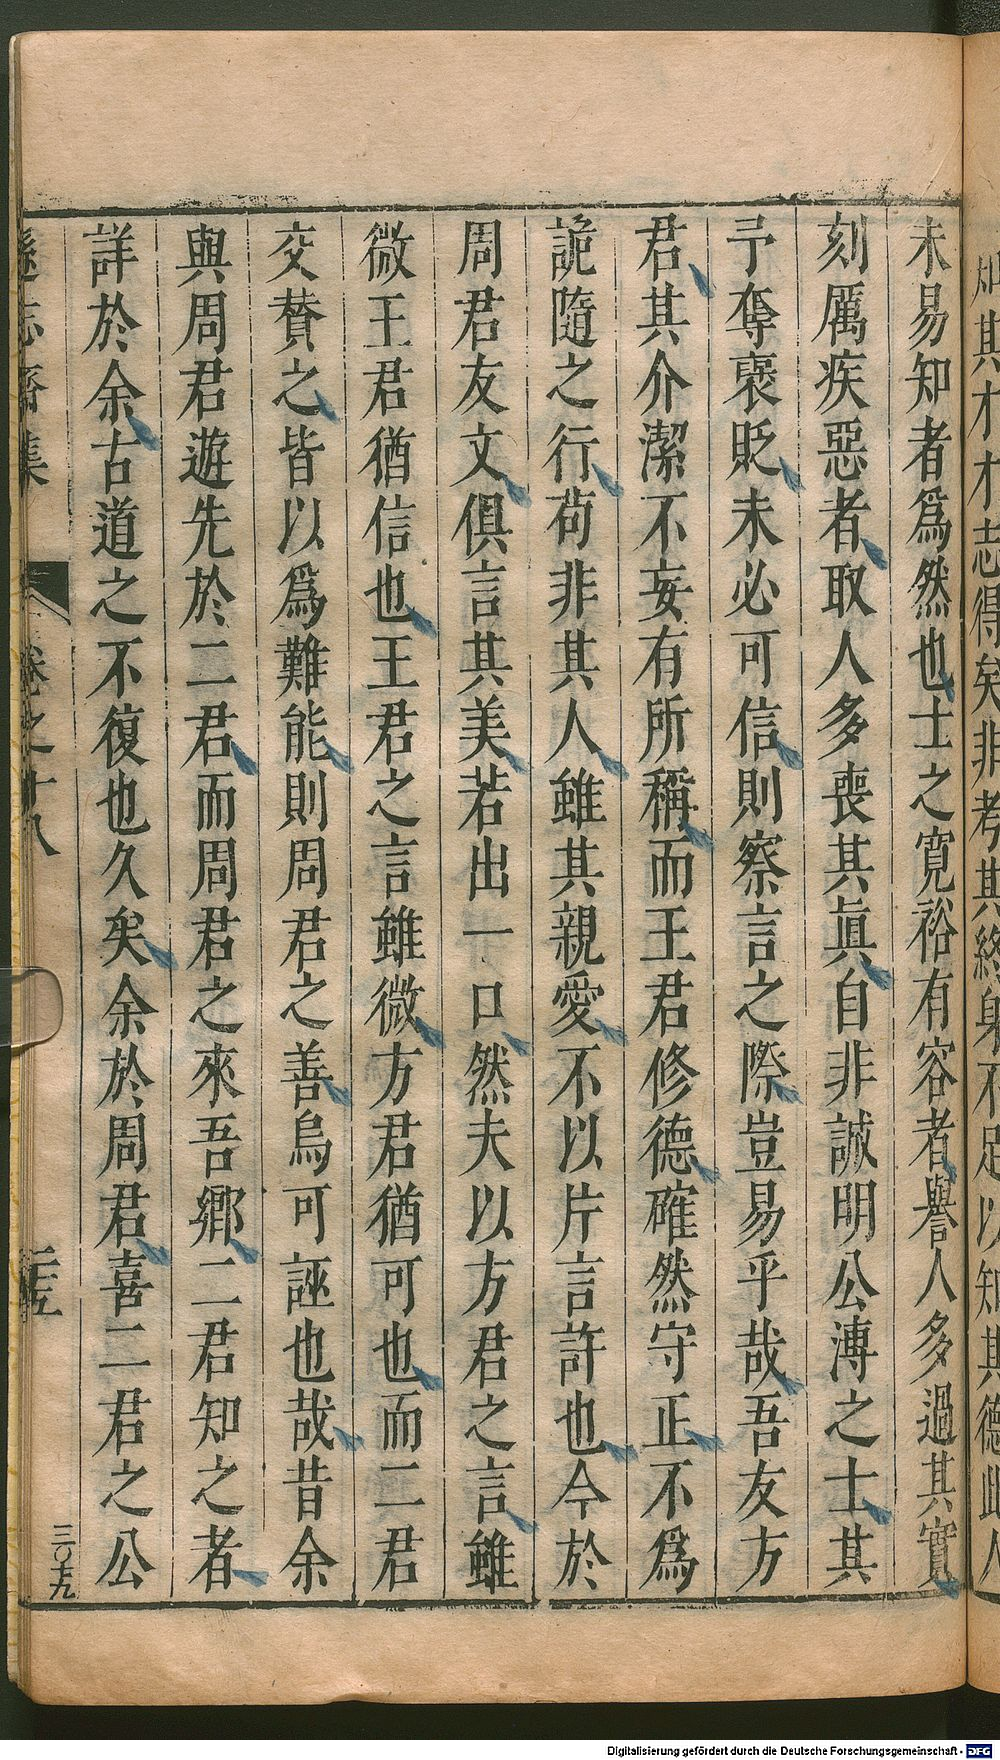 未易知者爲然也士之寛裕有容者譽人多過其實
刻厲疾惡者取人多喪其眞自非誠明公溥之士其
予奪褒貶未必可信則察言之際豈易乎哉吾友方
君其介潔不妄有所稱而王君修德確然守正不爲
詭隨之行苟非其人雖其親愛不以片言許也今於
周君友文俱言其美若出一口然夫以方君之言雖
微王君猶信也王君之言雖微方君猶可也而二君
交賛之皆以爲難能則周君之善烏可誣也哉昔余
與周君遊先於二君而周君之來吾鄉二君知之者
詳於余古道之不復也久矣余於周君喜二君之公
遜志齋集 卷之十八
三〇九
Digitalisierung gefördert durch die Deutsche Forschungsgemeinschaft - DFG